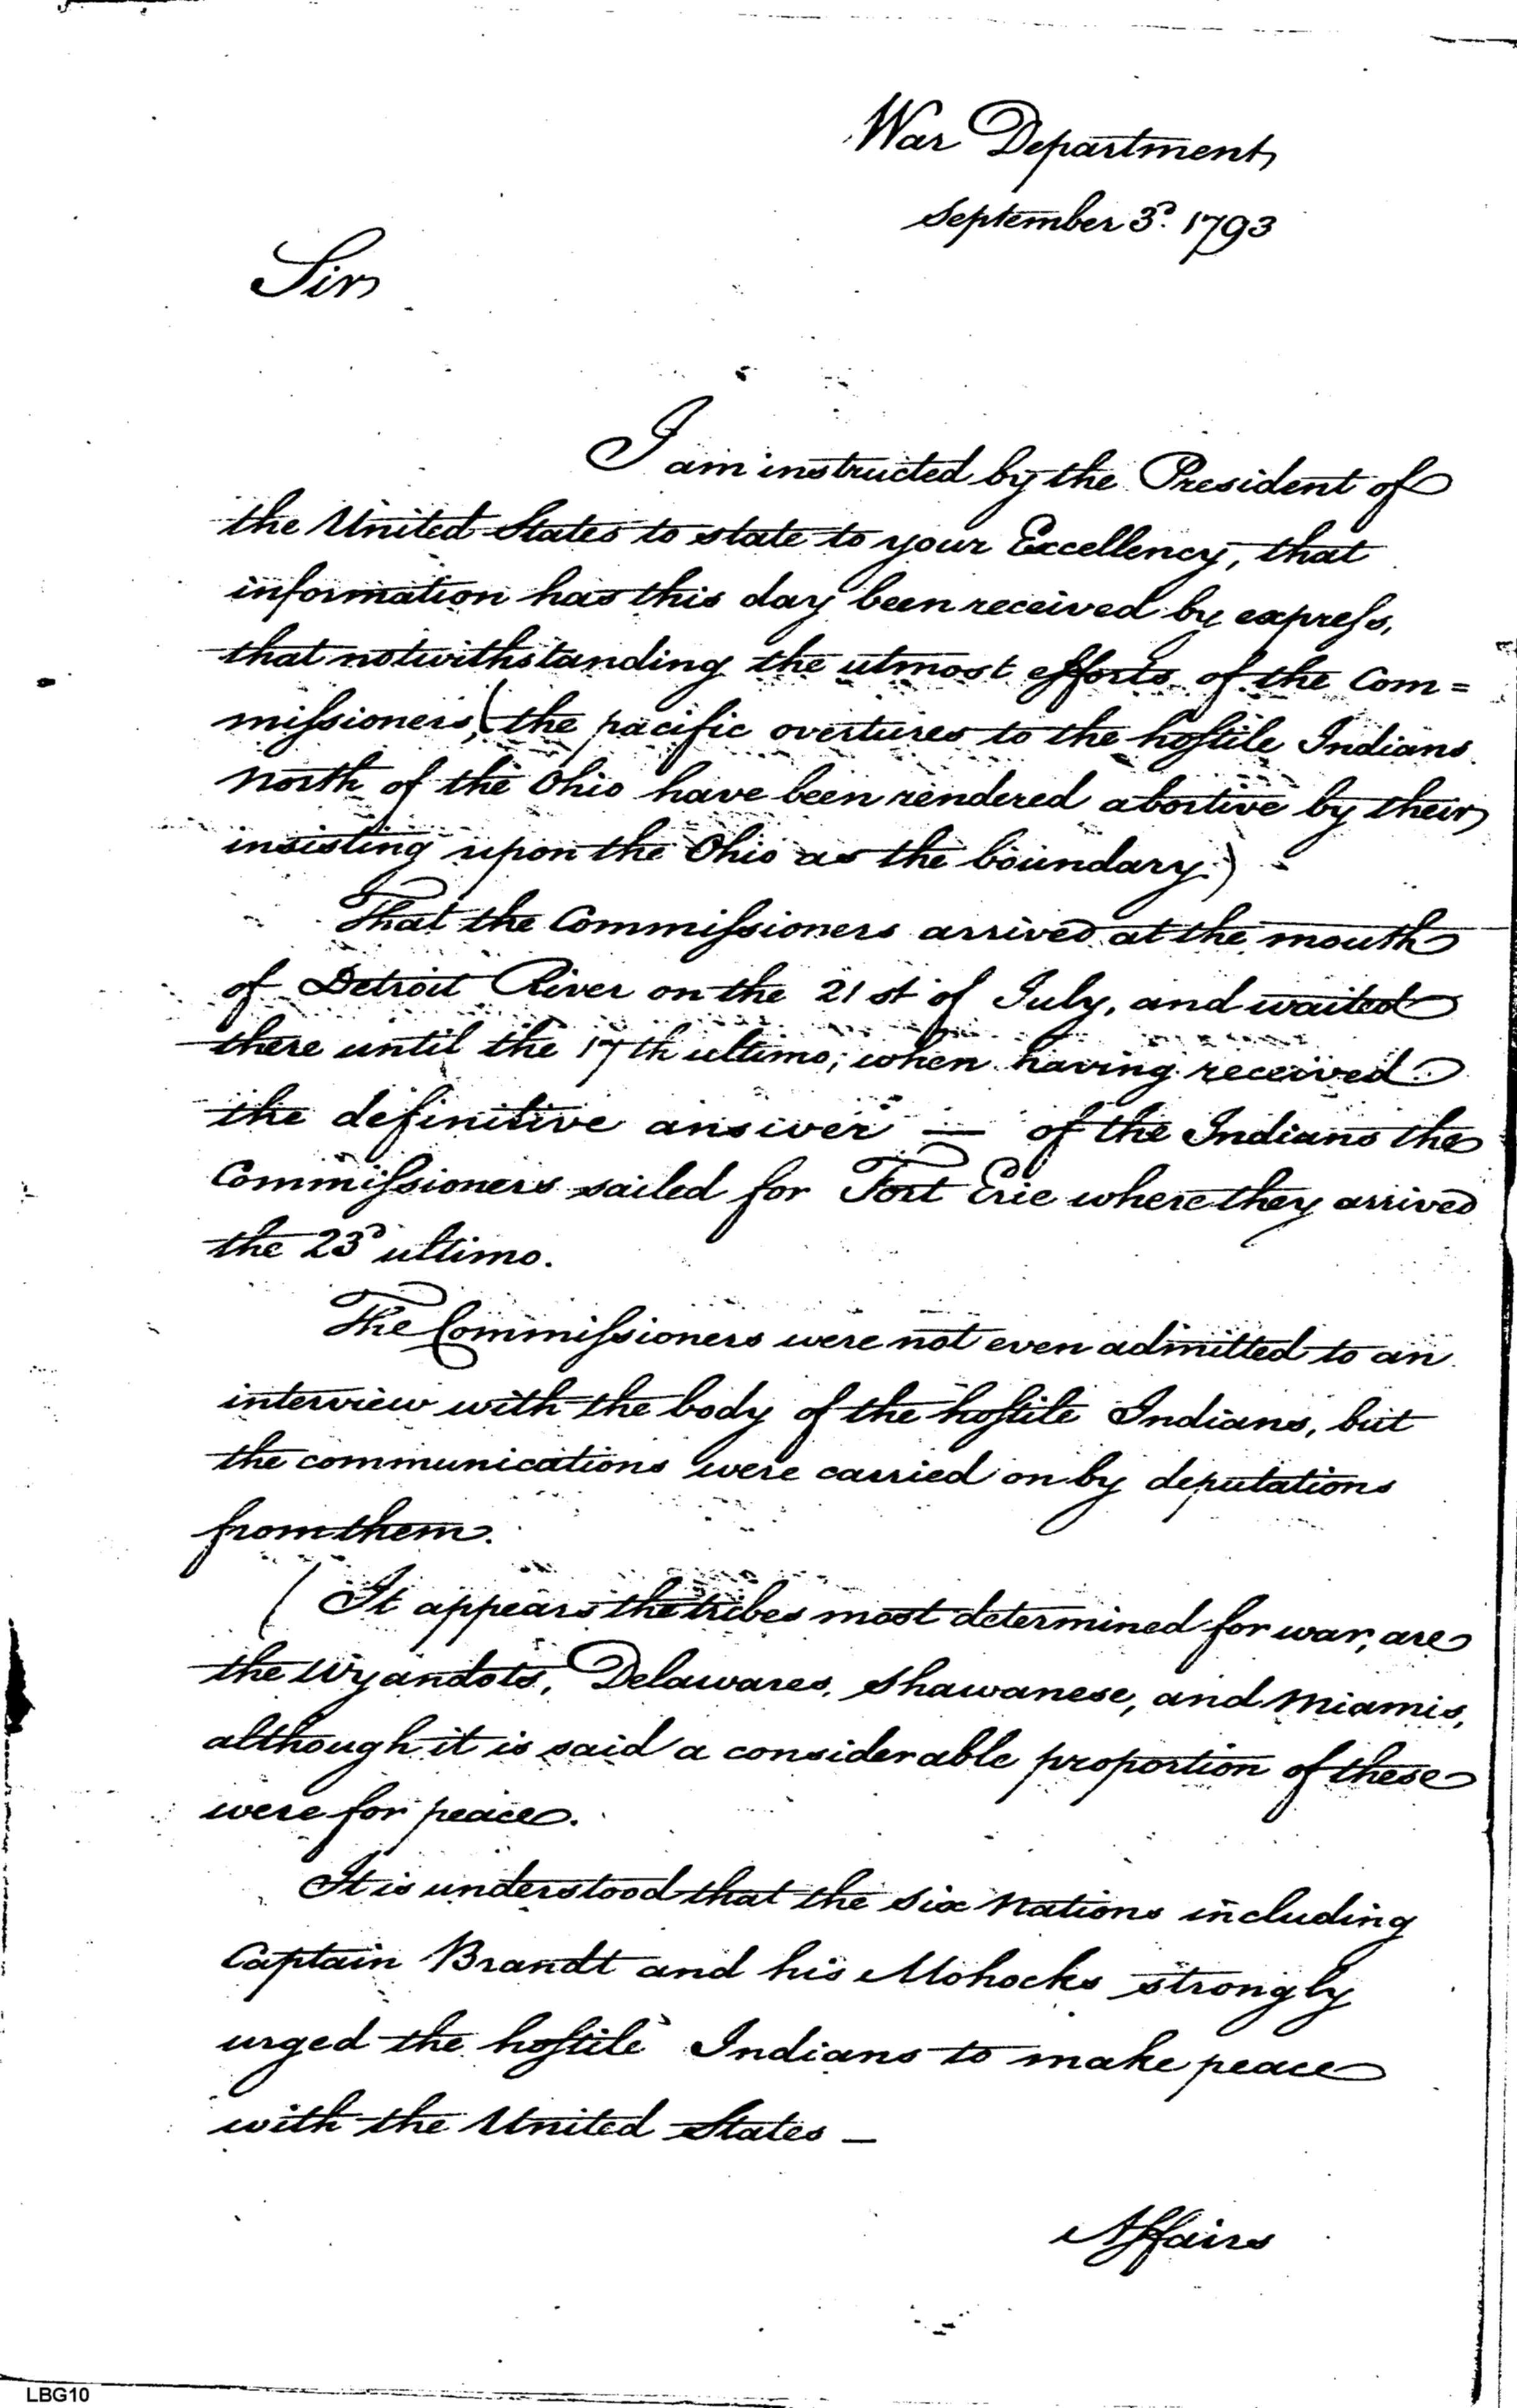 War Department
September 3d. 1793
Sir
I am instructed by the President of
the United States to state to your Excellency, that
information has this day been received by express,
that notwithstanding the utmost efforts of the Com=
missioners, (the pacific overtures to the hostile Indians
North of the Ohio have been rendered abortive by their
insisting upon the Ohio as the boundary.)
That the Commissioners arrived at the mouth
of Detroit River on the 21st of July, and waited
there until the 17th ultimo; when having received
the definitive answer — of the Indians the
Commissioners sailed for Fort Erie where they arrived
the 23d ultimo.
The Commissioners were not even admitted to an
interview with the body of the hostile Indians, but
the communications were carried on by deputations
from them.
(It appears the tribes most determined for war, are
the Wyandots, Delawares, Shawanese, and Miamis,
although it is said a considerable proportion of these
were for peace.
It is understood that the Six Nations including
Captain Brandt and his Mohocks strongly
urged the hostile Indians to make peace
with the United States —
Affairs
LBG10